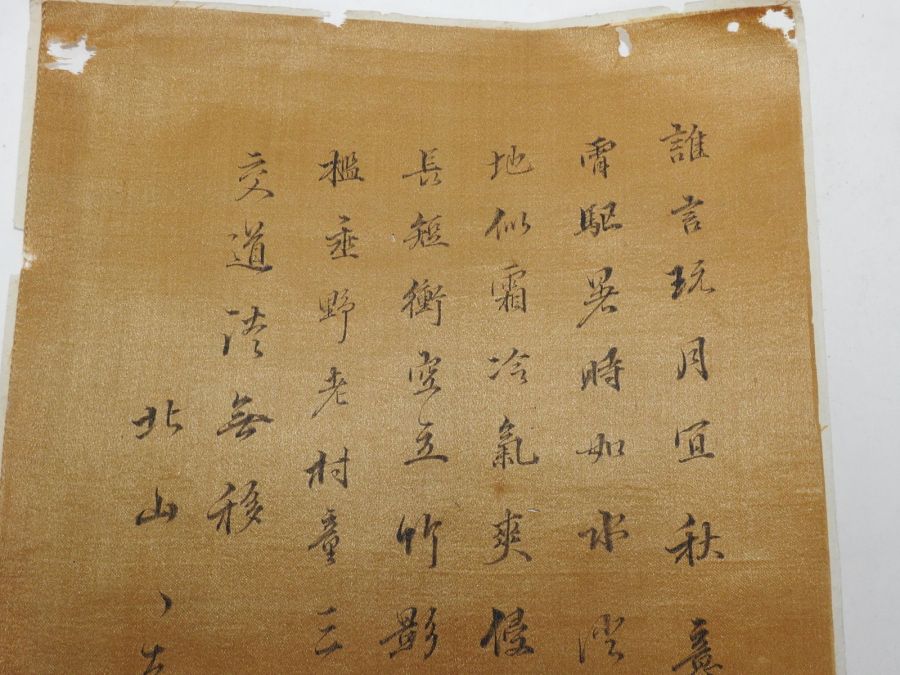 誰言玩月宜秋意
宵駈暑時如水澄
地似霜冷氣爽侵
長短衝空立竹影
檻垂野老村童三
交道淡無移
北山